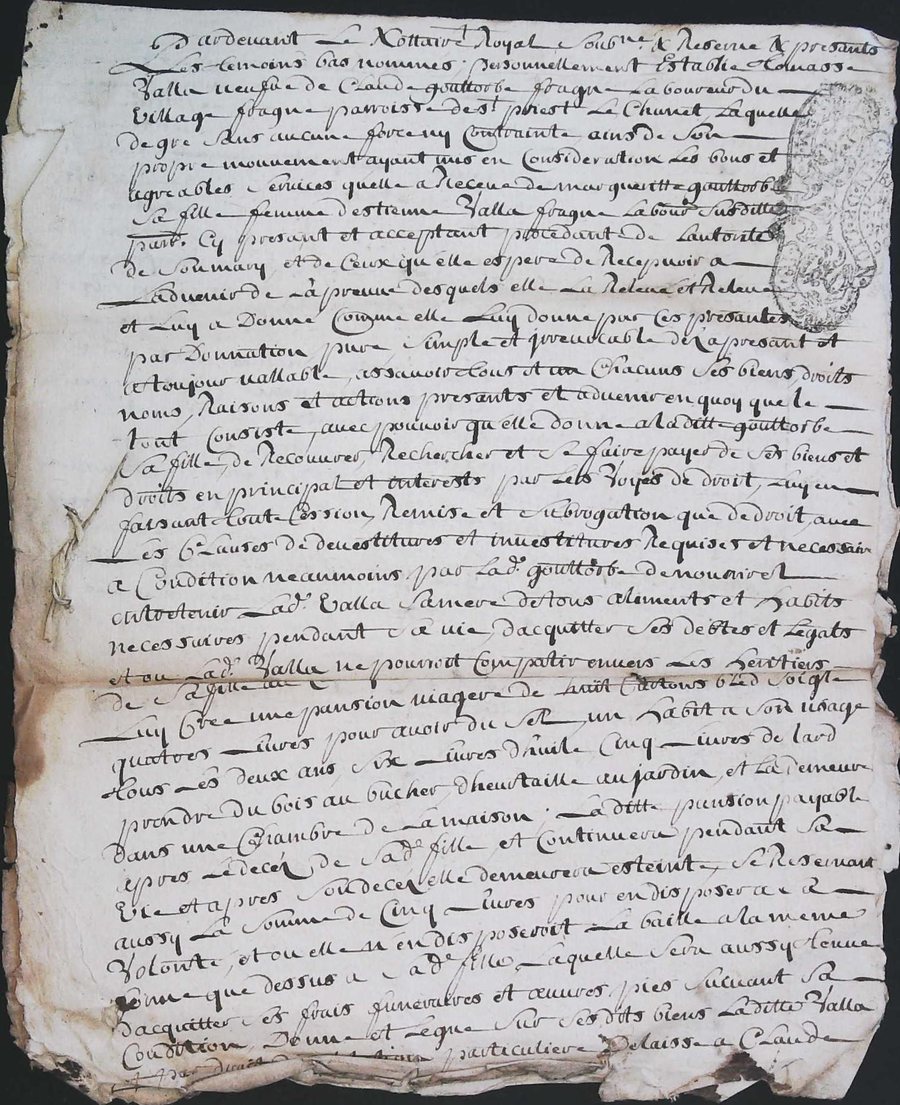 Pardevant Le Nottaire Royal Soubne & Reserve & presants
Les temoins bas nommes, personnellement Establie tomasse
Valla veufve de Claude gouttorbe fragne Laboureur du
Village fragne parroisse de st priest Le Chanet Laquelle
de gre sans aucune force ny Contrainte ains de Son
propre mouvement ayant mis en Consideration Les bons et
agreables Services quelle a Receue de marguerite gouttorbe
Sa fille femme destienne Valla fragne Labour Susditte
parr. Cy presant et acceptant procedante de Lautorite
de Son mary, et de Ceux qu elle espere de Recepvoir a
Ladvenir de La preuve desquels elle La Releve et Releve
et Luy a Donne Comme elle Luy donne par Ces presantes
par Donnation pure Simple et irrevocable dez a presant et
a toujour vallable, assavoir tous et un Chacuns Ses biens, droits
noms, Raisons et actions presants et advenir en quoy que le
tout Consiste, avec pouvoir qu elle donne a la ditte gouttorbe
Sa fille, de Recouvrer, Rechercher et Se faire payer de Ses biens et
droits en principal et interests par Les Voyes de droit, Luy en
faisant toute Cession, Remise et Subrogation que de droit, avec
Les Clauses de devestitures et investitures Requises et necessair
a Condition neaumoins par Lad. gouttorbe de nourir et
entretenir Lad. Valla Sa mere de tous aliments et habits
necessaires pendant Sa vie, dacquitter Ses debtes et Legats
et ou Lad. Valla ne pourroit Compatir envers Les heritiers
de Sa fille
Luy Cree une pansion viagere de huit Cartons bled Soigle
quatres Livres pour avoir du Sel, un habit a Son usage
tous Les deux ans, Six Livres dhuile, Cinq Livres de lard
prendre du bois au bucher, dheurtaille au jardin, et La demeure
dans une Chambre de La maison; La ditte pansion payable
apres Le decez de Sa d. fille, et Continuera pendant Sa
Vie et apres Son decez elle demeurera esteinte, Se Reservant
aussy La Somme de Cinq Livres pour en disposer a Sa
Volonte, et ou elle n en disposeroit La baille a la meme
forme que dessus a Sa de fille, Laquelle Sera aussy tenue
dacquitter Ses frais funeraires et oeuvres pies Suivant Sa
Condition, Donne et Legue Sur Ses dits biens La ditte Valla
par droit particuliere Delaisse a Claude